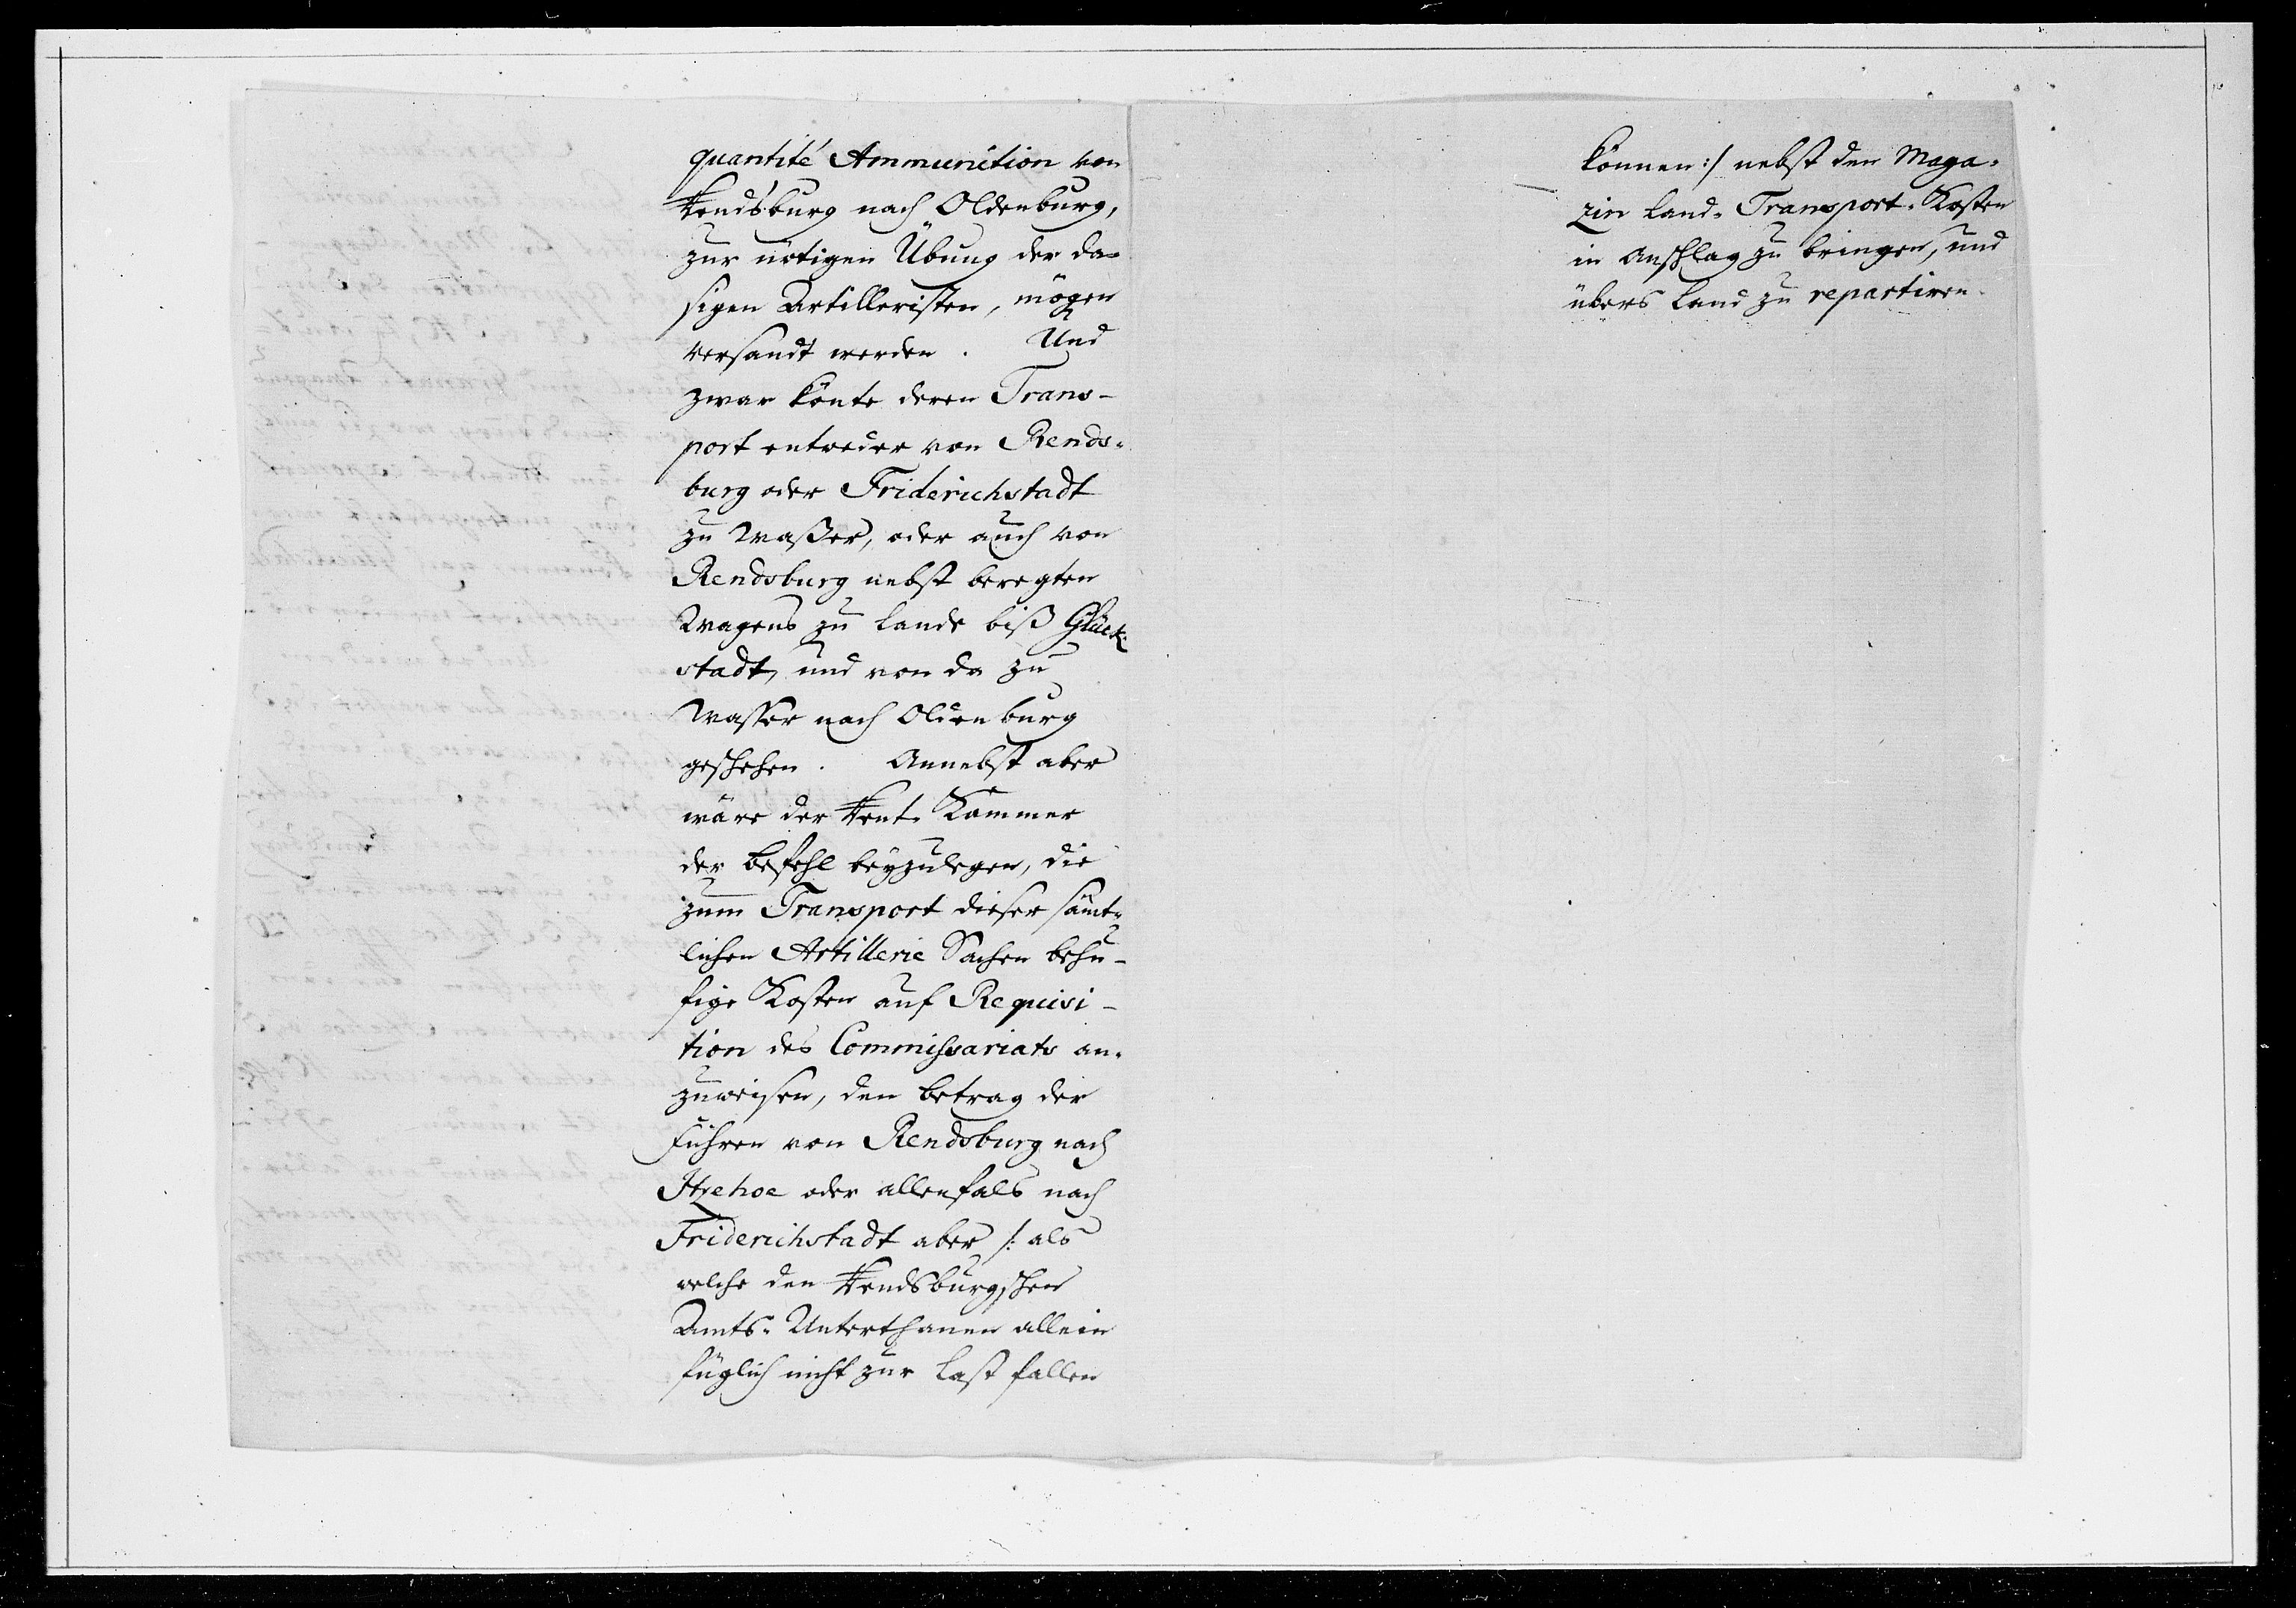 quantité Ammunition von
Rendsburg nach Oldenburg,
zur nötigen Übung der da-
sigen Artilleristen, mögen
versandt werden. Und
zwar könte deren Trans-
port entweder von Rends-
burg oder Friderichstadt
zu Waßer, oder auch von
Rendsburg nebst beregten
Wagens zu Lande biß Glück-
stadt, und von da zu
Wasser nach Oldenburg
geschehen. Annebst aber
wäre der Rent-Kammer
der Befehl beyzulegen, die
zum Transport dieser sämt-
lichen Artillerie Sachen behu-
fige Kosten auf Requisi-
tion des Commissariats an-
zuweisen, den Betrag der
Fuhren von Rendsburg nach
Itzehoe oder allenfals nach
Friderichstadt aber /: als
welche den Rendsburgschen
Amts-Unterthanen allein
füglich nicht zur Last fallen
können :/ nebst den Maga-
zin Land-Transport-Kosten
in Anschlag zu bringen, und
übers Land zu repartiren.